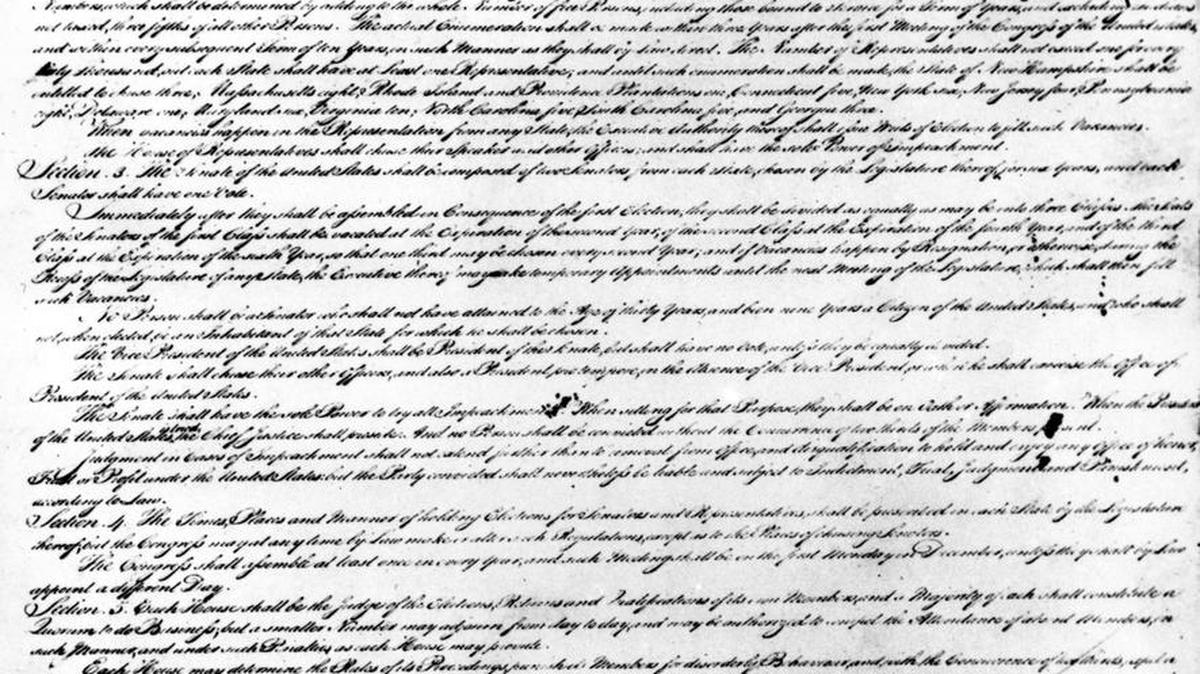 Numbers, which shall be determined by adding to the whole Number of free Persons, including those bound to Service for a Term of Years, and excluding Indians
not taxed, three fifths of all other Persons. The actual Enumeration shall be made within three Years after the first Meeting of the Congress of the United States,
and within every subsequent Term of ten Years, in such Manner as they shall by Law direct. The Number of Representatives shall not exceed one for every
thirty Thousand, but each State shall have at Least one Representative; and until such enumeration shall be made, the State of New Hampshire shall be
entitled to chuse three, Massachusetts eight, Rhode Island and Providence Plantations one, Connecticut five, New York six, New Jersey four, Pennsylvania
eight, Delaware one, Maryland six, Virginia ten, North Carolina five, South Carolina five, and Georgia three.
When vacancies happen in the Representation from any State, the Executive Authority thereof shall issue Writs of Election to fill such Vacancies.
The House of Representatives shall chuse their Speaker and other Officers; and shall have the sole Power of Impeachment.
Section. 3. The Senate of the United States shall be composed of two Senators from each State, chosen by the Legislature thereof, for six Years; and each
Senator shall have one Vote.
Immediately after they shall be assembled in Consequence of the first Election, they shall be divided as equally as may be into three Classes. The Seats
of the Senators of the first Class shall be vacated at the Expiration of the second Year, of the second Class at the Expiration of the fourth Year, and of the third
Class at the Expiration of the sixth Year, so that one third may be chosen every second Year; and if Vacancies happen by Resignation, or otherwise, during the
Recess of the Legislature of any State, the Executive thereof may make temporary Appointments until the next Meeting of the Legislature, which shall then fill
such Vacancies.
No Person shall be a Senator who shall not have attained to the Age of thirty Years, and been nine Years a Citizen of the United States, and who shall
not, when elected, be an Inhabitant of that State for which he shall be chosen.
The Vice President of the United States shall be President of the Senate, but shall have no Vote, unless they be equally divided.
The Senate shall chuse their other Officers, and also a President pro tempore, in the Absence of the Vice President, or when he shall exercise the Office of
President of the United States.
The Senate shall have the sole Power to try all Impeachments. When sitting for that Purpose, they shall be on Oath or Affirmation. When the President
of the United States is tried, the Chief Justice shall preside: And no Person shall be convicted without the Concurrence of two thirds of the Members present.
Judgment in Cases of Impeachment shall not extend further than to removal from Office, and disqualification to hold and enjoy any Office of honor,
Trust or Profit under the United States: but the Party convicted shall nevertheless be liable and subject to Indictment, Trial, Judgment and Punishment,
according to Law.
Section. 4. The Times, Places and Manner of holding Elections for Senators and Representatives, shall be prescribed in each State by the Legislature
thereof; but the Congress may at any time by Law make or alter such Regulations, except as to the Places of chusing Senators.
The Congress shall assemble at least once in every Year, and such Meeting shall be on the first Monday in December, unless they shall by Law
appoint a different Day.
Section. 5. Each House shall be the Judge of the Elections, Returns and Qualifications of its own Members, and a Majority of each shall constitute a
Quorum to do Business; but a smaller Number may adjourn from day to day, and may be authorized to compel the Attendance of absent Members, in
such Manner, and under such Penalties as each House may provide.
Each House may determine the Rules of its Proceedings, punish its Members for disorderly Behaviour, and, with the Concurrence of two thirds, expel a